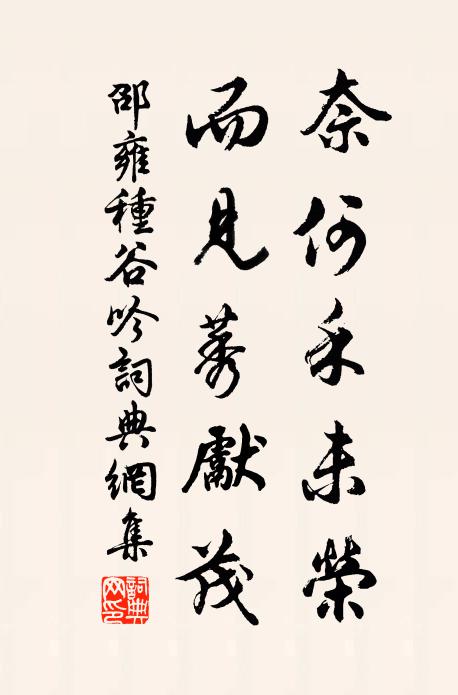 奈何禾未榮
而見莠獻茂
邵雍種谷吟詞典網集
詞典网印